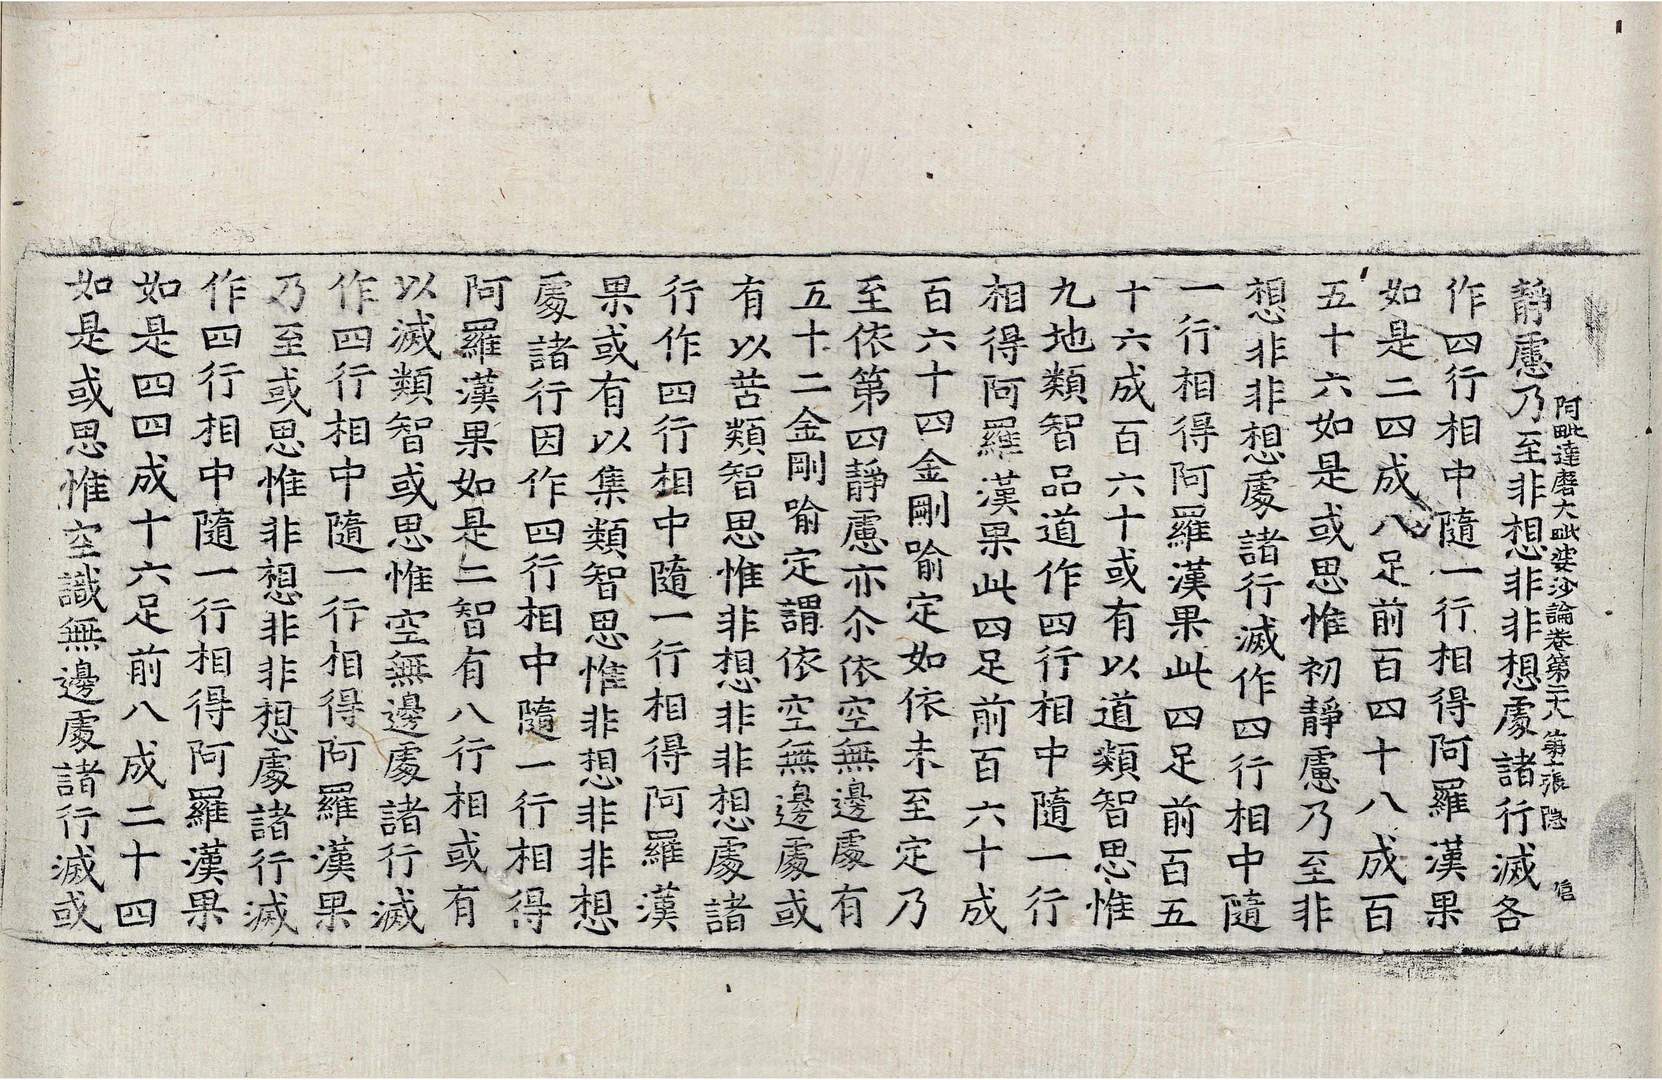 阿毗達磨大毗婆沙論卷第二十八 第十張 隱 信
靜慮乃至非想非非想處諸行滅各
作四行相中隨一行相得阿羅漢果
如是二四成八足前百四十八成百
五十六如是或思惟初靜慮乃至非
想非非想處諸行滅作四行相中隨
一行相得阿羅漢果此四足前百五
十六成百六十或有以道類智思惟
九地類智品道作四行相中隨一行
相得阿羅漢果此四足前百六十成
百六十四金剛喻定如依未至定乃
至依第四靜慮亦尒依空無邊處有
五十二金剛喻定謂依空無邊處或
有以苦類智思惟非想非非想處諸
行作四行相中隨一行相得阿羅漢
果或有以集類智思惟非想非非想
處諸行因作四行相中隨一行相得
阿羅漢果如是二智有八行相或有
以滅類智或思惟空無邊處諸行滅
作四行相中隨一行相得阿羅漢果
乃至或思惟非想非非想處諸行滅
作四行相中隨一行相得阿羅漢果
如是四四成十六足前八成二十四
如是或思惟空識無邊處諸行滅或